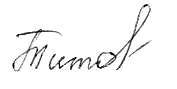 Титов